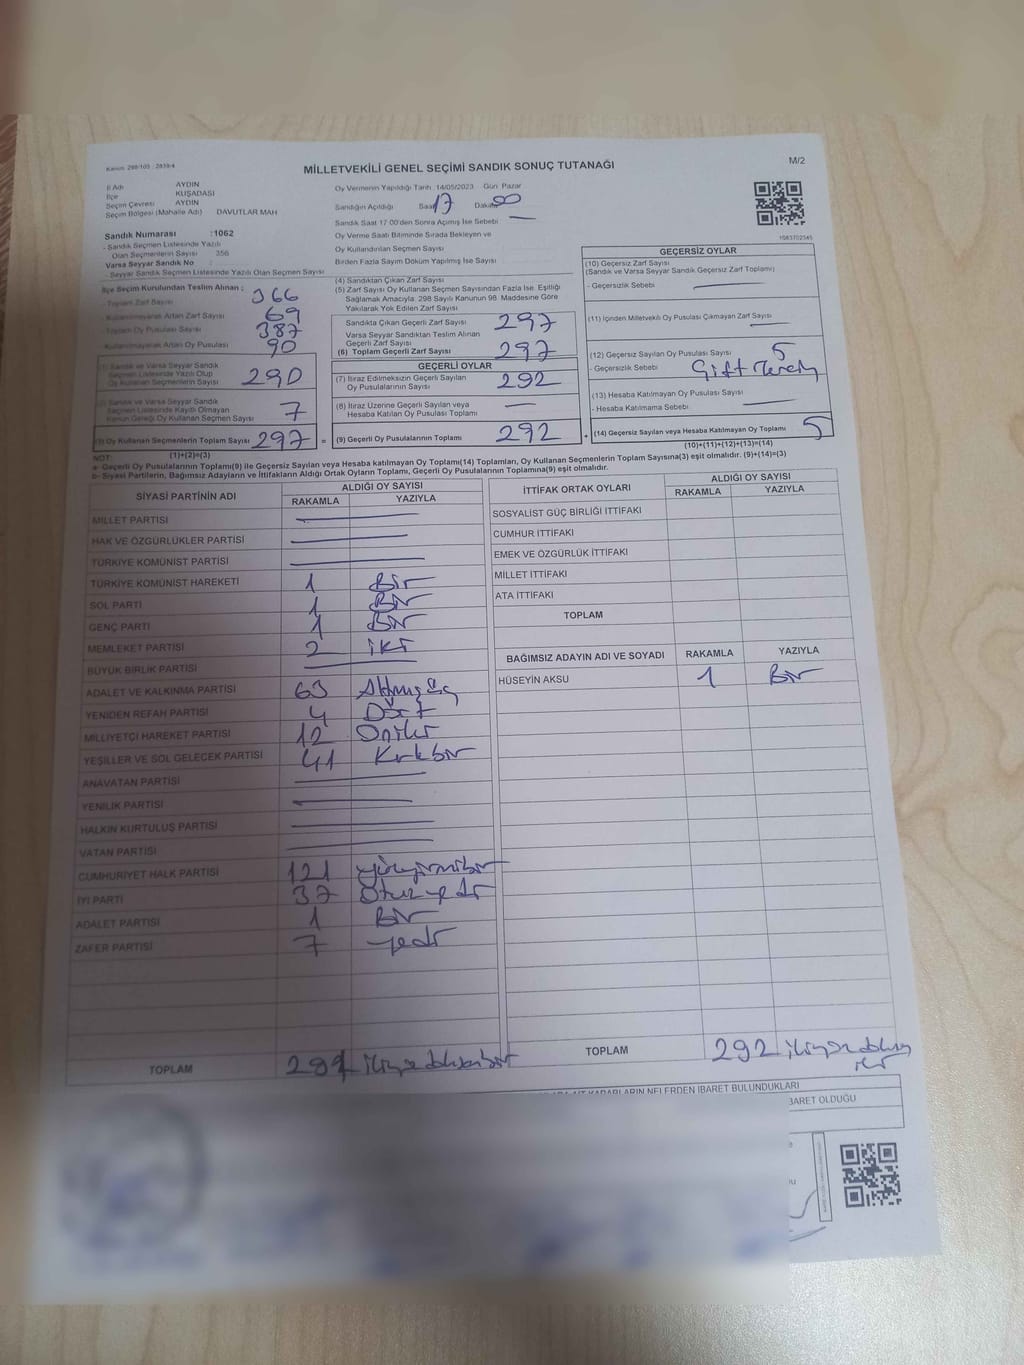 Kanun: 298/105 : 2839/4
MİLLETVEKİLİ GENEL SEÇİMİ SANDIK SONUÇ TUTANAĞI
M/2
İl Adı AYDIN
İlçe KUŞADASI
Seçim Çevresi AYDIN
Seçim Bölgesi (Mahalle Adı) DAVUTLAR MAH
Sandık Numarası :1062
- Sandık Seçmen Listesinde Yazılı
Olan Seçmenlerin Sayısı 356
Varsa Seyyar Sandık No :
- Seyyar Sandık Seçmen Listesinde Yazılı Olan Seçmen Sayısı :
Oy Vermenin Yapıldığı Tarih :14/05/2023 Gün Pazar
Sandığın Açıldığı Saat 17 Dakika 00
Sandık Saat 17:00'den Sonra Açılmış İse Sebebi : —
Oy Verme Saati Bitiminde Sırada Bekleyen ve
Oy Kullandırılan Seçmen Sayısı :
Birden Fazla Sayım Döküm Yapılmış İse Sayısı :
İlçe Seçim Kurulundan Teslim Alınan ;
- Toplam Zarf Sayısı 366
- Kullanılmayarak Artan Zarf Sayısı 69
- Toplam Oy Pusulası Sayısı 387
- Kullanılmayarak Artan Oy Pusulası 90
(1) Sandık ve Varsa Seyyar Sandık
Seçmen Listesinde Yazılı Olup
Oy Kullanan Seçmenlerin Sayısı 290
(2) Sandık ve Varsa Seyyar Sandık
Seçmen Listesinde Kayıtlı Olmayan
Kanun Gereği Oy Kullanan Seçmen Sayısı 7
(3) Oy Kullanan Seçmenlerin Toplam Sayısı 297 =
(1)+(2)=(3)
(4) Sandıktan Çıkan Zarf Sayısı
(5) Zarf Sayısı Oy Kullanan Seçmen Sayısından Fazla İse, Eşitliği
Sağlamak Amacıyla, 298 Sayılı Kanunun 98. Maddesine Göre
Yakılarak Yok Edilen Zarf Sayısı
Sandıkta Çıkan Geçerli Zarf Sayısı 297
Varsa Seyyar Sandıktan Teslim Alınan
Geçerli Zarf Sayısı
(6) Toplam Geçerli Zarf Sayısı 297
GEÇERLİ OYLAR
(7) İtiraz Edilmeksizin Geçerli Sayılan
Oy Pusulalarının Sayısı 292
(8) İtiraz Üzerine Geçerli Sayılan veya
Hesaba Katılan Oy Pusulası Toplamı —
(9) Geçerli Oy Pusulalarının Toplamı 292 +
1083702345
GEÇERSİZ OYLAR
(10) Geçersiz Zarf Sayısı
(Sandık ve Varsa Seyyar Sandık Geçersiz Zarf Toplamı)
- Geçersizlik Sebebi : —
(11) İçinden Milletvekili Oy Pusulası Çıkmayan Zarf Sayısı —
(12) Geçersiz Sayılan Oy Pusulası Sayısı 5
- Geçersizlik Sebebi :
(13) Hesaba Katılmayan Oy Pusulası Sayısı —
- Hesaba Katılmama Sebebi :
(14) Geçersiz Sayılan veya Hesaba Katılmayan Oy Toplamı 5
(10)+(11)+(12)+(13)=(14)
NOT:
a- Geçerli Oy Pusulalarının Toplamı(9) ile Geçersiz Sayılan veya Hesaba katılmayan Oy Toplamı(14) Toplamları, Oy Kullanan Seçmenlerin Toplam Sayısına(3) eşit olmalıdır. (9)+(14)=(3)
b- Siyasi Partilerin, Bağımsız Adayların ve İttifakların Aldığı Ortak Oyların Toplamı, Geçerli Oy Pusulalarının Toplamına(9) eşit olmalıdır.
SİYASİ PARTİNİN ADI ALDIĞI OY SAYISI
RAKAMLA YAZIYLA
MİLLET PARTİSİ —
HAK VE ÖZGÜRLÜKLER PARTİSİ —
TÜRKİYE KOMÜNİST PARTİSİ —
TÜRKİYE KOMÜNİST HAREKETİ 1 Bir
SOL PARTİ 1 Bir
GENÇ PARTİ 1 Bir
MEMLEKET PARTİSİ 2 iki
BÜYÜK BİRLİK PARTİSİ —
ADALET VE KALKINMA PARTİSİ 63 Altmış üç
YENİDEN REFAH PARTİSİ 4 Dört
MİLLİYETÇİ HAREKET PARTİSİ 12 Oniki
YEŞİLLER VE SOL GELECEK PARTİSİ 41 Kırkbir
ANAVATAN PARTİSİ —
YENİLİK PARTİSİ —
HALKIN KURTULUŞ PARTİSİ —
VATAN PARTİSİ —
CUMHURİYET HALK PARTİSİ 121 yüzyirmibir
İYİ PARTİ 37 Otuzyedi
ADALET PARTİSİ 1 Bir
ZAFER PARTİSİ 7 yedi
TOPLAM 291 ikiyüzdoksanbir
İTTİFAK ORTAK OYLARI ALDIĞI OY SAYISI
RAKAMLA YAZIYLA
SOSYALİST GÜÇ BİRLİĞİ İTTİFAKI
CUMHUR İTTİFAKI
EMEK VE ÖZGÜRLÜK İTTİFAKI
MİLLET İTTİFAKI
ATA İTTİFAKI
TOPLAM
BAĞIMSIZ ADAYIN ADI VE SOYADI RAKAMLA YAZIYLA
HÜSEYİN AKSU 1 Bir
TOPLAM 292 ikiyüzdoksan
iki
KARARLARIN NELERDEN İBARET BULUNDUKLARI
İBARET OLDUĞU